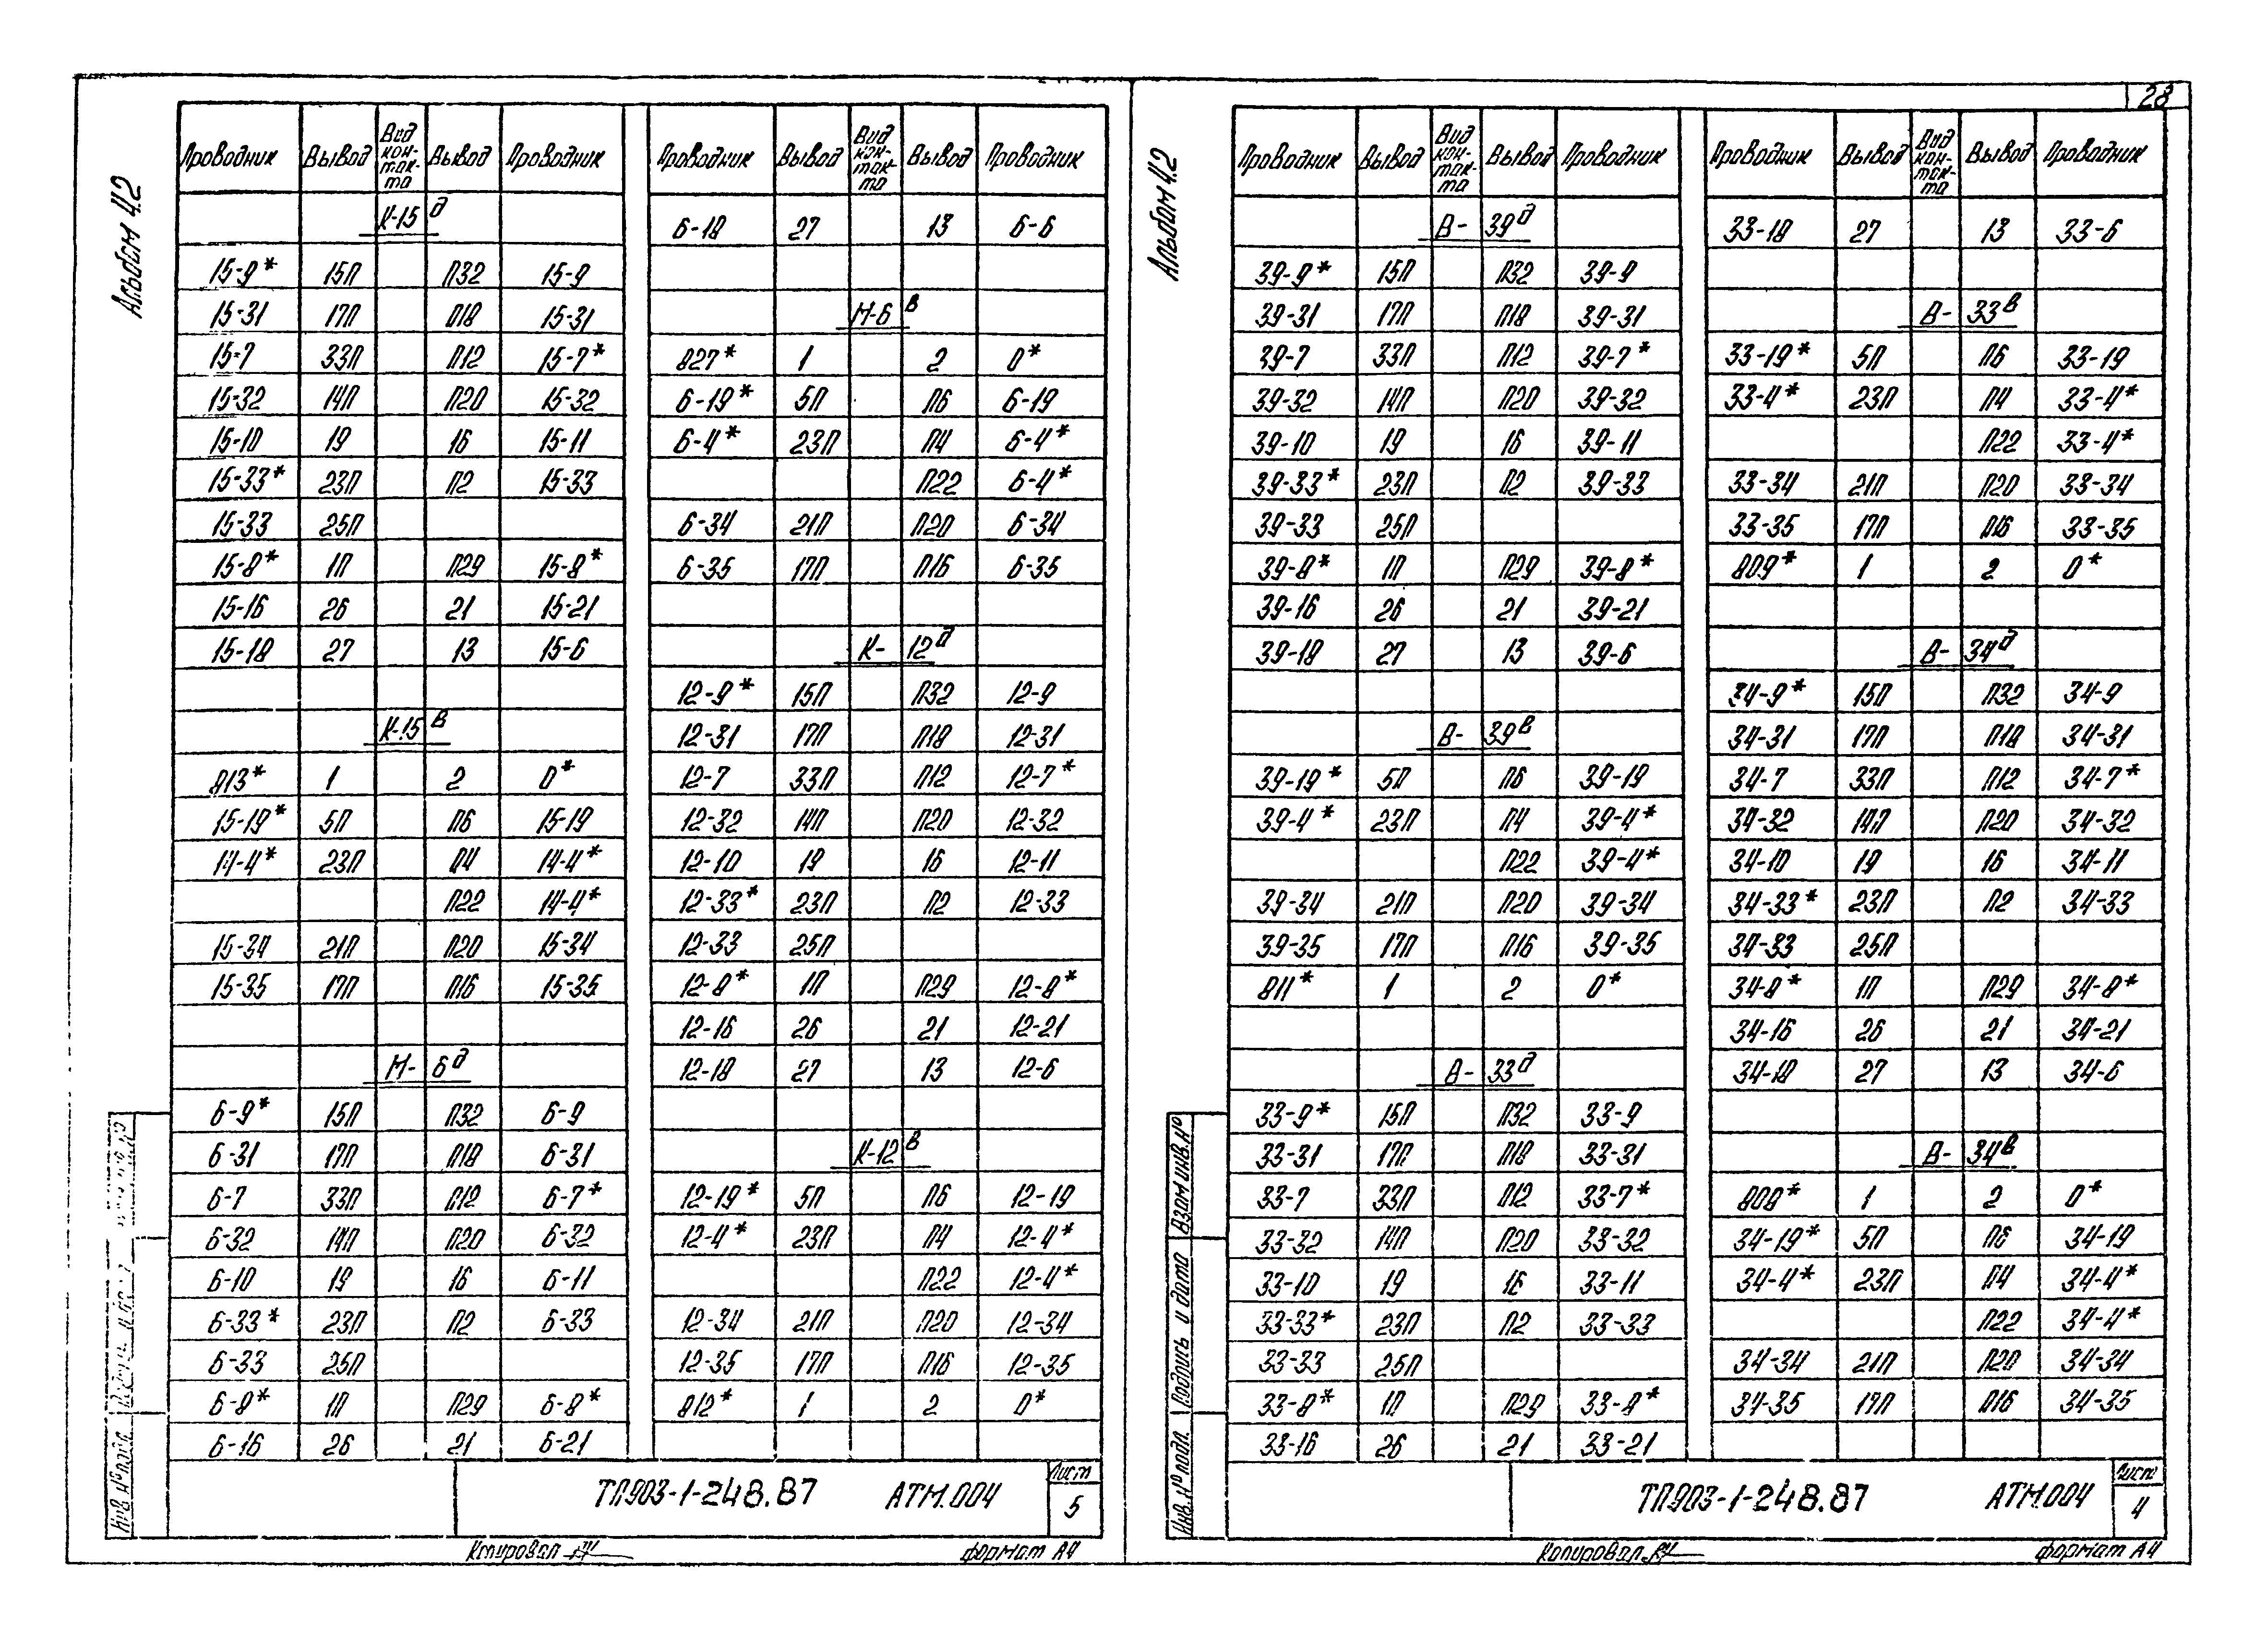 28
Альбом 4.2
Проводник Вывод Вид контакта Вывод Проводник
К-15д
15-9* 15П П32 15-9
15-31 17П П18 15-31
15-7 33П П12 15-7*
15-32 14П П20 15-32
15-10 19 16 15-11
15-33* 23П П2 15-33
15-33 25П
15-8* 1П П29 15-8*
15-16 26 21 15-21
15-18 27 13 15-6
К-15в
813* 1 2 0*
15-19* 5П П6 15-19
14-4* 23П П4 14-4*
П22 14-4*
15-34 21П П20 15-34
15-35 17П П16 15-35
М-6д
6-9* 15П П32 6-9
6-31 17П П18 6-31
6-7 33П П12 6-7*
6-32 14П П20 6-32
6-10 19 16 6-11
6-33* 23П П2 6-33
6-33 25П
6-8* 1П П29 6-8*
6-16 26 21 6-21
Проводник Вывод Вид контакта Вывод Проводник
6-18 27 13 6-6
М-6в
827* 1 2 0*
6-19* 5П П6 6-19
6-4* 23П П4 6-4*
П22 6-4*
6-34 21П П20 6-34
6-35 17П П16 6-35
К-12д
12-9* 15П П32 12-9
12-31 17П П18 12-31
12-7 33П П12 12-7*
12-32 14П П20 12-32
12-10 19 16 12-11
12-33* 23П П2 12-33
12-33 25П
12-8* 1П П29 12-8*
12-16 26 21 12-21
12-18 27 13 12-6
К-12в
12-19* 5П П6 12-19
12-4* 23П П4 12-4*
П22 12-4*
12-34 21П П20 12-34
12-35 17П П16 12-35
812* 1 2 0*
Инв. № подл.
ТП903-1-248.87 АТМ.004
Лист
5
Копировал
формат А4
Альбом 4.2
Проводник Вывод Вид контакта Вывод Проводник
В-39д
39-9* 15П П32 39-9
39-31 17П П18 39-31
39-7 33П П12 39-7*
39-32 14П П20 39-32
39-10 19 16 39-11
39-33* 23П П2 39-33
39-33 25П
39-8* 1П П29 39-8*
39-16 26 21 39-21
39-18 27 13 39-6
В-39в
39-19* 5П П6 39-19
39-4* 23П П4 39-4*
П22 39-4*
39-34 21П П20 39-34
39-35 17П П16 39-35
811* 1 2 0*
В-33д
33-9* 15П П32 33-9
33-31 17П П18 33-31
33-7 33П П12 33-7*
33-32 14П П20 33-32
33-10 19 16 33-11
33-33* 23П П2 33-33
33-33 25П
33-8* 1П П29 33-8*
33-16 26 21 33-21
Проводник Вывод Вид контакта Вывод Проводник
33-18 27 13 33-6
В-33в
33-19* 5П П6 33-19
33-4* 23П П4 33-4*
П22 33-4*
33-34 21П П20 33-34
33-35 17П П16 33-35
809* 1 2 0*
В-34д
34-9* 15П П32 34-9
34-31 17П П18 34-31
34-7 33П П12 34-7*
34-32 14П П20 34-32
34-10 19 16 34-11
34-33* 23П П2 34-33
34-33 25П
34-8* 1П П29 34-8*
34-16 26 21 34-21
34-18 27 13 34-6
В-34в
808* 1 2 0*
34-19* 5П П6 34-19
34-4* 23П П4 34-4*
П22 34-4*
34-34 21П П20 34-34
34-35 17П П16 34-35
Взам инв. №
Подпись и дата
Инв. № подл.
ТП903-1-248.87 АТМ.004
Лист
4
Копировал
формат А4